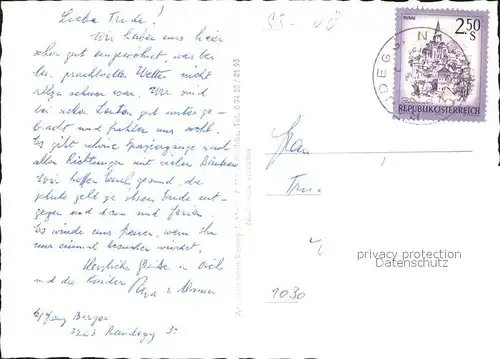 Liebe Trude!
Wir haben uns hier
schon gut eingewöhnt, was bei
dem prachtvollen Wetter nicht
allzu schwer war. Wir sind
bei netten Leuten gut unterge-
bracht und fühlen uns wohl.
Es gibt schöne Spaziergänge nach
allen Richtungen mit vielen Bänken
Wir hoffen Euch gesund, die
Schule geht ja ihrem Ende ent-
gegen und dann sind Ferien.
Es würde uns freuen, wenn ihr
uns einmal besuchen würdet.
Herzliche Grüße an Dich
und die Kinder Papa u Mama
3263 Randegg
Tel. 0 74 22 / 21 95
S3 - NÖ
2.50
S
REPUBLIK ÖSTERREICH
Frau
1030
privacy protection
Datenschutz